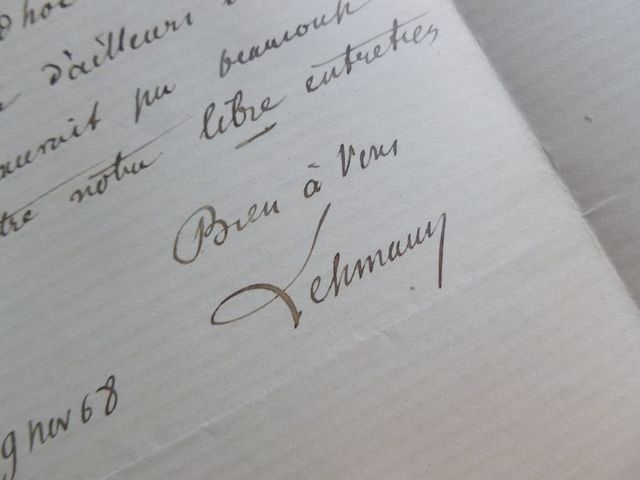 d'ailleurs
aurait pu beaucoup
notre libre entretien
Bien à Vous
Lehmann
9 nov 68